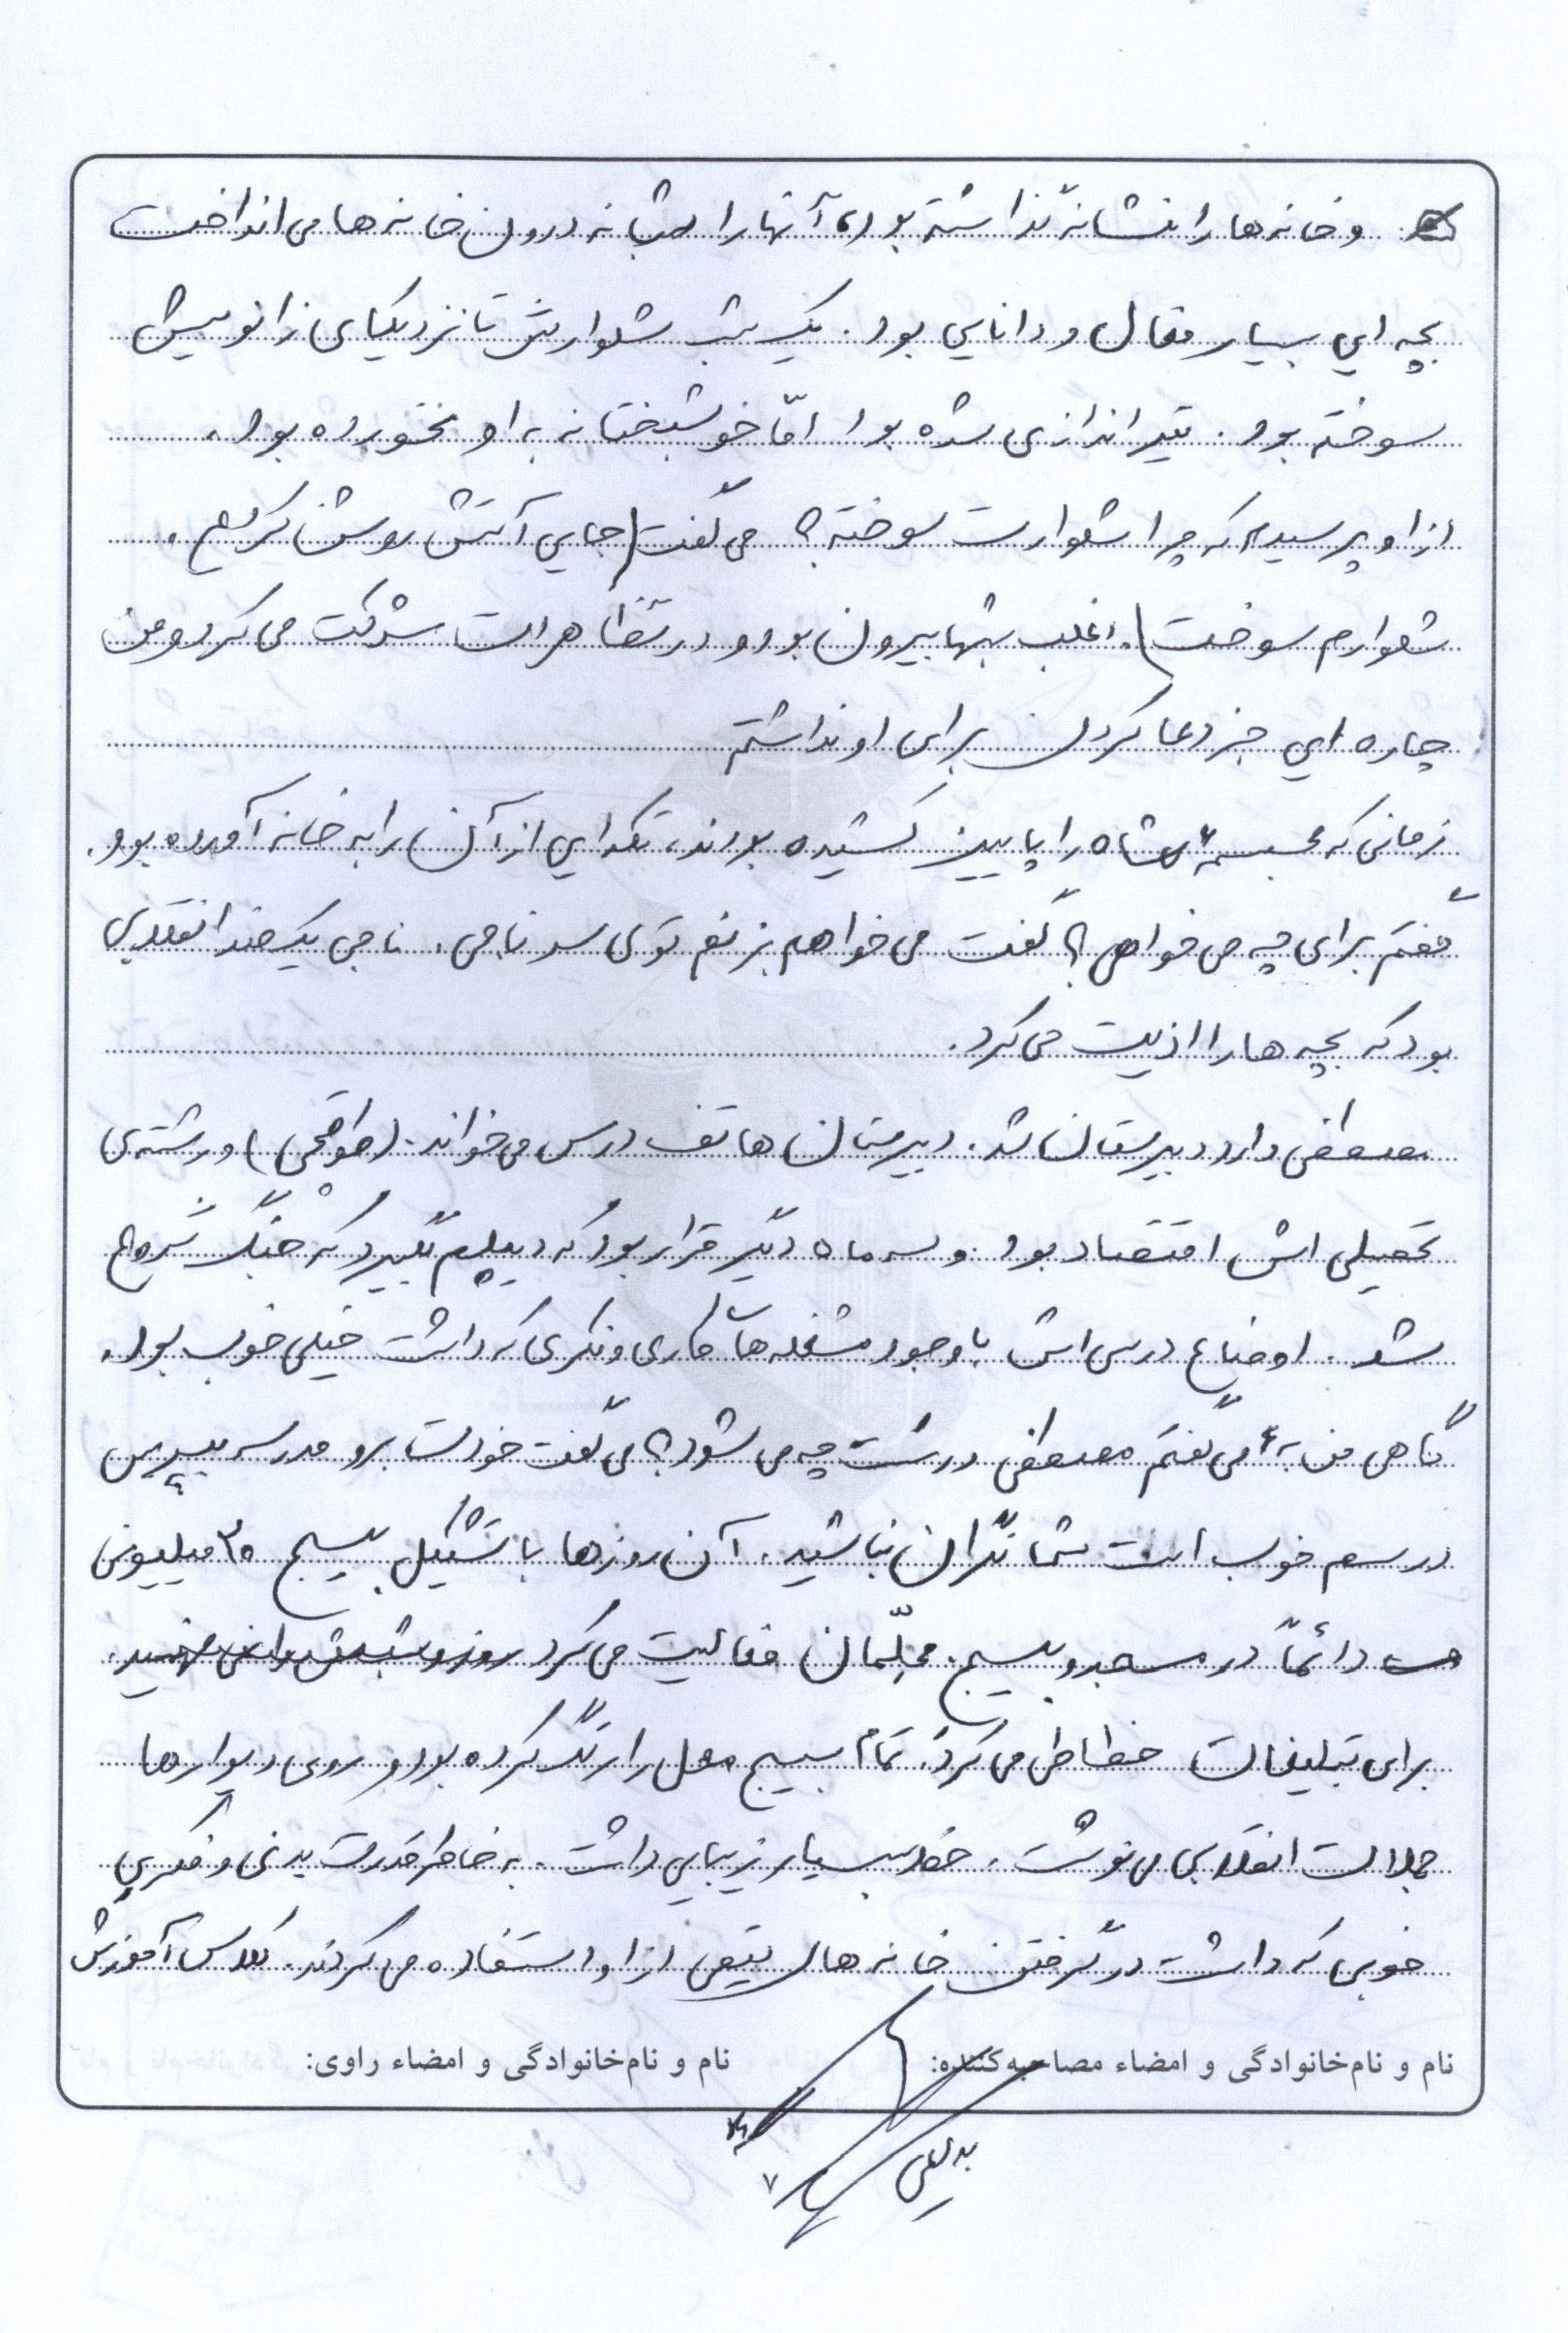 و خانه ها را نشانه گذاشته بود، آنها را شبانه درون خانه ها می انداخت
بچه ایی بسیار فعال و دانایی بود. یک شب شلوارش تا نزدیکیای زانویش
سوخته بود. تیراندازی شده بود امّا خوشبختانه به او نخورده بود.
از او پرسیدم که چرا شلوارت سوخته؟ می گفت (جایی آتش روشن کردیم.
شلوارم سوخت). اغلب شبها بیرون بود و در تظاهرات شرکت می کرد و من
چاره ایی جز دعا کردن برای او نداشتم
زمانی که مجسمه ی شاه را پایین کشیده بودند، تکه ایی از آن را به خانه آورده بود.
گفتم برای چه می خواهی؟ گفت می خواهم بزنم توی سر ناجی. ناجی یک ضد انقلابی
بود که بچه ها را اذیت می کرد.
مصطفی وارد دبیرستان شد. دبیرستان هاتف درس می خواند. (طوقچی) و رشته ی
تحصیلی اش اقتصاد بود. و سه ماه دیگر قرار بود که دیپلم بگیرد که جنگ شروع
شد. اوضاع درسی اش با وجود مشغله ها کاری و فکری که داشت خیلی خوب بود.
گاهی من به می گفتم مصطفی درست چه می شود؟ می گفت خودت برو مدرسه بپرس
درسم خوب است شما نگران نباشید. آن روزها با تشکیل بسیج ۲۰ میلیونی
دائماً در مسجد و بسیج محلّمان فعالیت می کرد روز و شبش را نمی فهمید.
برای تبلیغات خطاطی می کرد. تمام بسیج محل را رنگ کرده بود و روی دیوارها
جملات انقلابی می نوشت. خط بسیار زیبایی داشت. به خاطر قدرت بدنی و فکری
خوبی که داشت در گرفتن خانه های تیمی از او استفاده می کردند. کلاس آموزش
نام و نام خانوادگی و امضاء مصاحبه کننده:
نام و نام خانوادگی و امضاء راوی: